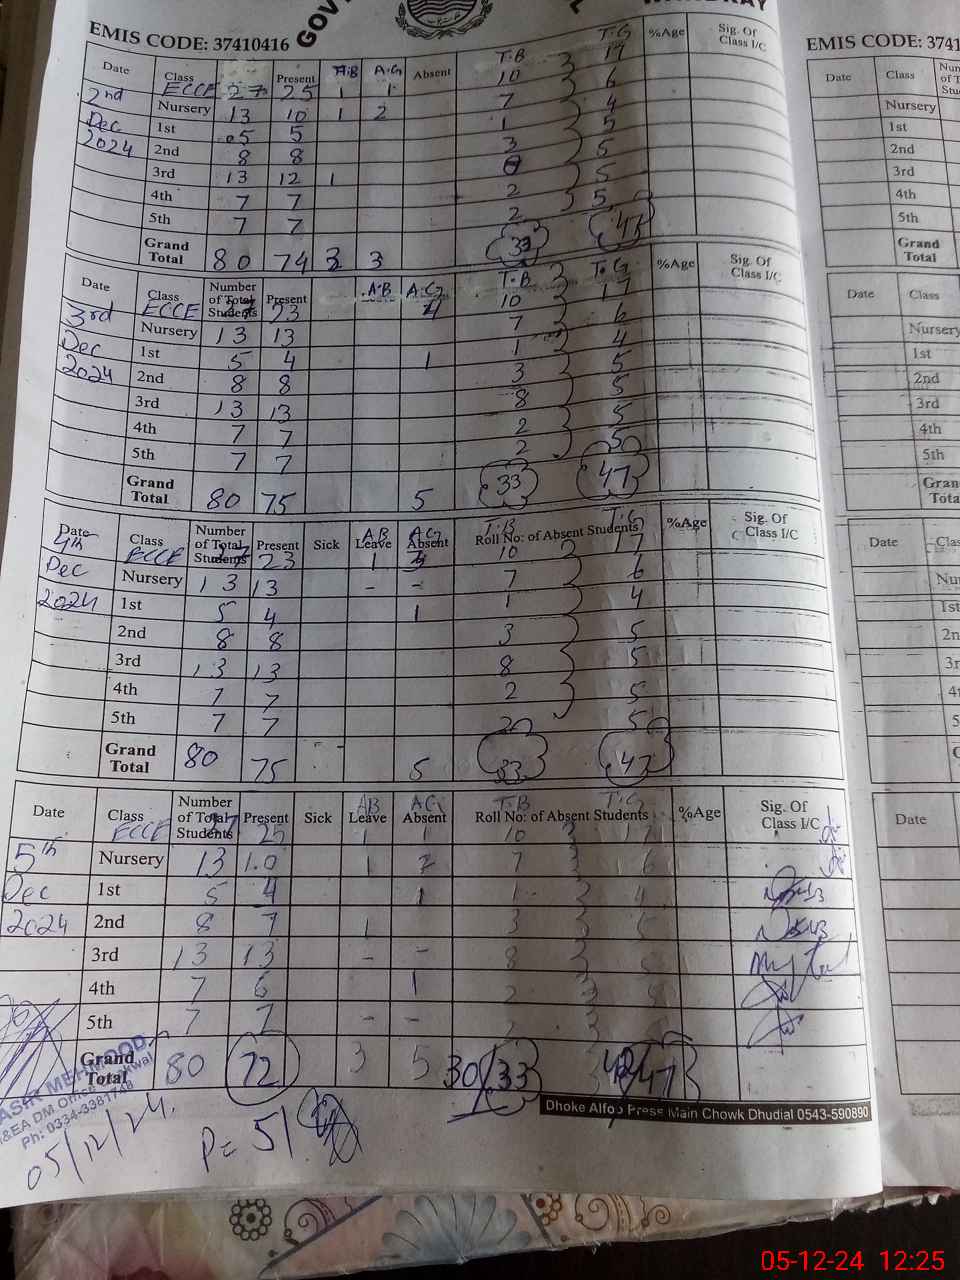 EMIS CODE: 37410416
Date Class Present A.B A.G Absent T.B T.G %Age Sig. Of Class I/C
ECCE 27 25 1 1 10 17
2nd Nursery 13 10 1 2 7 6
Dec 1st 05 5 1 4
2024 2nd 8 8 3 5
3rd 13 12 1 8 5
4th 7 7 2 5
5th 7 7 2 5
Grand Total 80 74 3 3 33 47
Date Class Number of Total Students Present A.B A.G T.B T.G %Age Sig. Of Class I/C
ECCE 27 23 4 10 17
3rd Nursery 13 13 7 6
Dec 1st 5 4 1 1 4
2024 2nd 8 8 3 5
3rd 13 13 8 5
4th 7 7 2 5
5th 7 7 2 5
Grand Total 80 75 5 33 47
Date Class Number of Total Students Present Sick AB Leave AG Absent T.B T.G Roll No: of Absent Students %Age Sig. Of Class I/C
4th ECCE 27 23 1 10 17
Dec Nursery 13 13 - - 7 6
2024 1st 5 4 1 1 4
2nd 8 8 3 5
3rd 13 13 8 5
4th 7 7 2 5
5th 7 7 2 5
Grand Total 80 75 5 33 47
Date Class Number of Total Students Present Sick AB Leave AG Absent T.B T.G Roll No: of Absent Students %Age Sig. Of Class I/C
ECCE 27 25 1 1 10 17
5th Nursery 13 10 1 2 7 6
Dec 1st 5 4 1 1 4
2024 2nd 8 7 1 3 5
3rd 13 13 - - 8 5
4th 7 6 1 2 5
5th 7 7 - - 2 5
Grand Total 80 72 3 5 30/33 42/47
MEHMOOD
M&EA DM Office
Ph: 0334-3381768
05/12/24
P= 5/
Dhoke Alfoo Press Main Chowk Dhudial 0543-590890
EMIS CODE: 3741
Date Class
Nursery
1st
2nd
3rd
4th
5th
Grand Total
Date Class
Nursery
1st
2nd
3rd
4th
5th
Date
Date
05-12-24 12:25